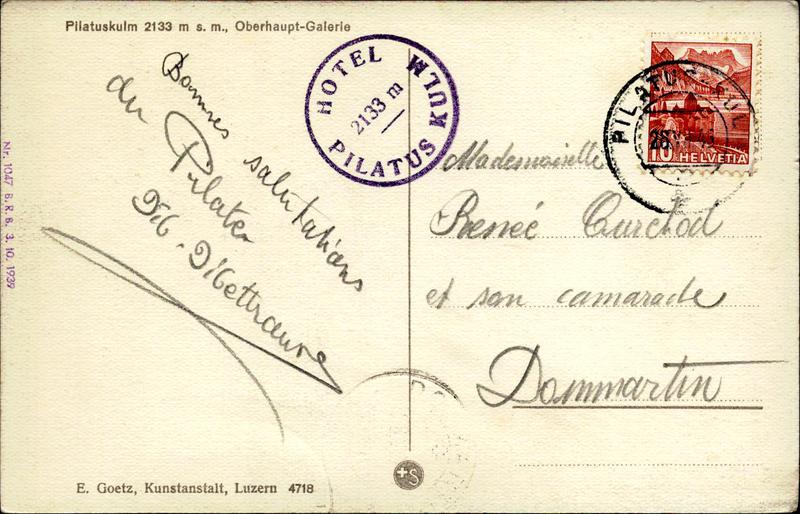 Pilatuskulm 2133 m s. m., Oberhaupt-Galerie
HOTEL KULM
2133 m
PILATUS
PILATUS-KULM
10 HELVETIA
Bonnes salutations
du Pilate
Mademoiselle
Reneé Curchod
et son camarade
Dommartin
Nr. 1047 B.R.B. 3. 10. 1939
+S
E. Goetz, Kunstanstalt, Luzern 4718